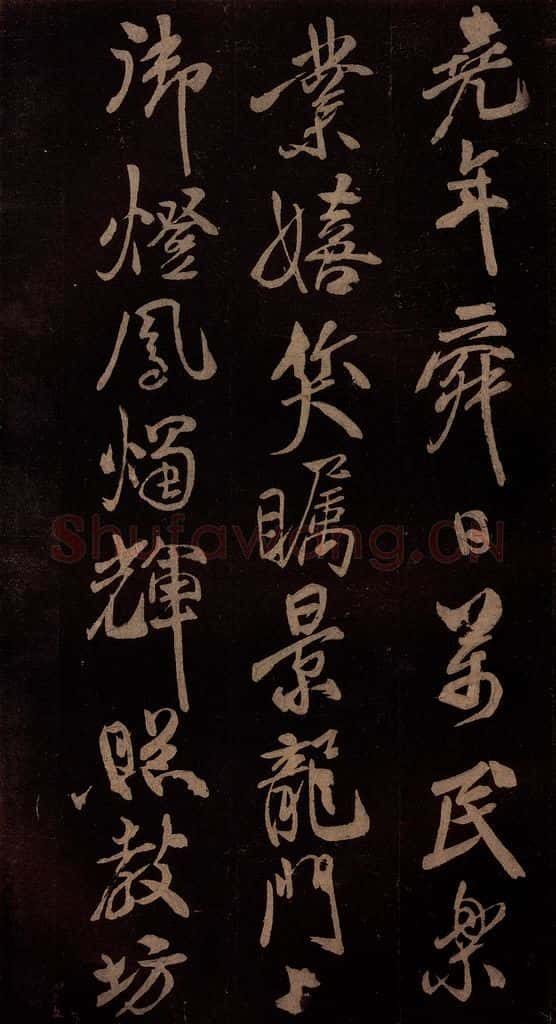 堯年舜日萬民樂
業嬉笑矚景龍門上
御燈鳳燭輝照教坊
Shufawang.CN